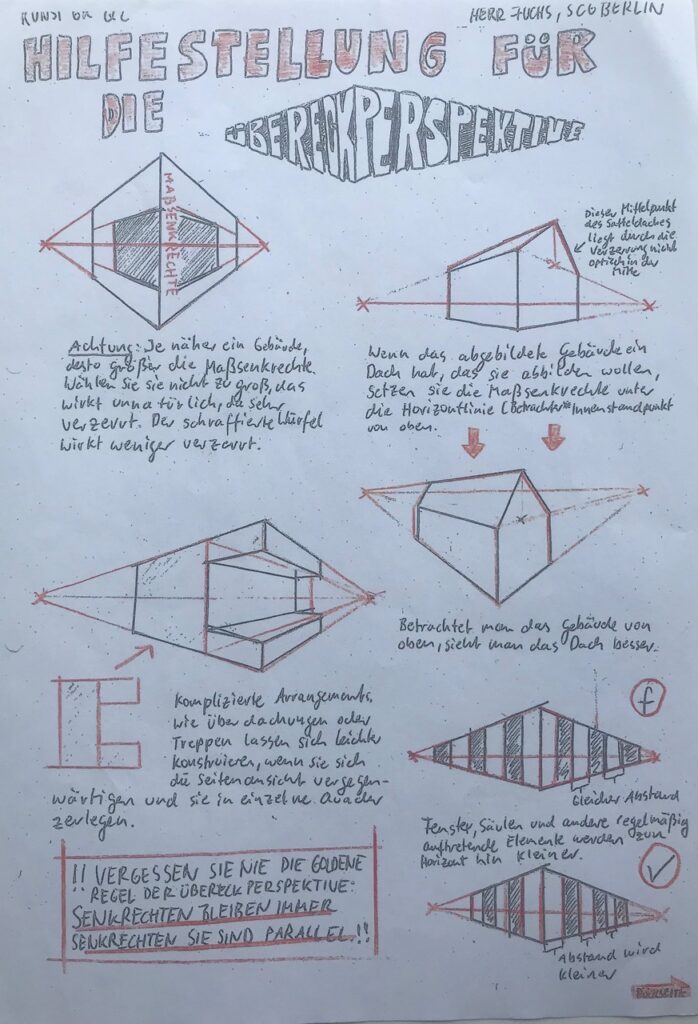 KUNST GK
HERR FUCHS, SCG BERLIN
HILFESTELLUNG FÜR
DIE ÜBERECKPERSPEKTIVE
MAßSENKRECHTE
Achtung: Je näher ein Gebäude,
desto größer die Maßsenkrechte.
Wählen Sie sie nicht zu groß, das
wirkt unnatürlich, da sehr
verzerrt. Der schraffierte Würfel
wirkt weniger verzerrt.
Dieser Mittelpunkt
des Satteldaches
liegt durch die
Verzerrung nicht
optisch in der
Mitte
Wenn das abgebildete Gebäude ein
Dach hat, das sie abbilden wollen,
setzen sie die Maßsenkrechte unter
die Horizontlinie (Betrachter*innenstandpunkt
von oben.
Betrachtet man das Gebäude von
oben, sieht man das Dach besser.
Komplizierte Arrangements,
wie Überdachungen oder
Treppen lassen sich leichter
konstruieren, wenn sie sich
die Seitenansicht vergegen-
wärtigen und sie in einzelne Quader
zerlegen.
f
Gleicher Abstand
Fenster, Säulen und andere regelmäßig
auftretende Elemente werden zum
Horizont hin kleiner.
Abstand wird
kleiner
!! VERGESSEN SIE NIE DIE GOLDENE
REGEL DER ÜBERECKPERSPEKTIVE:
SENKRECHTEN BLEIBEN IMMER
SENKRECHTEN SIE SIND PARALLEL!!
RÜCKSEITE